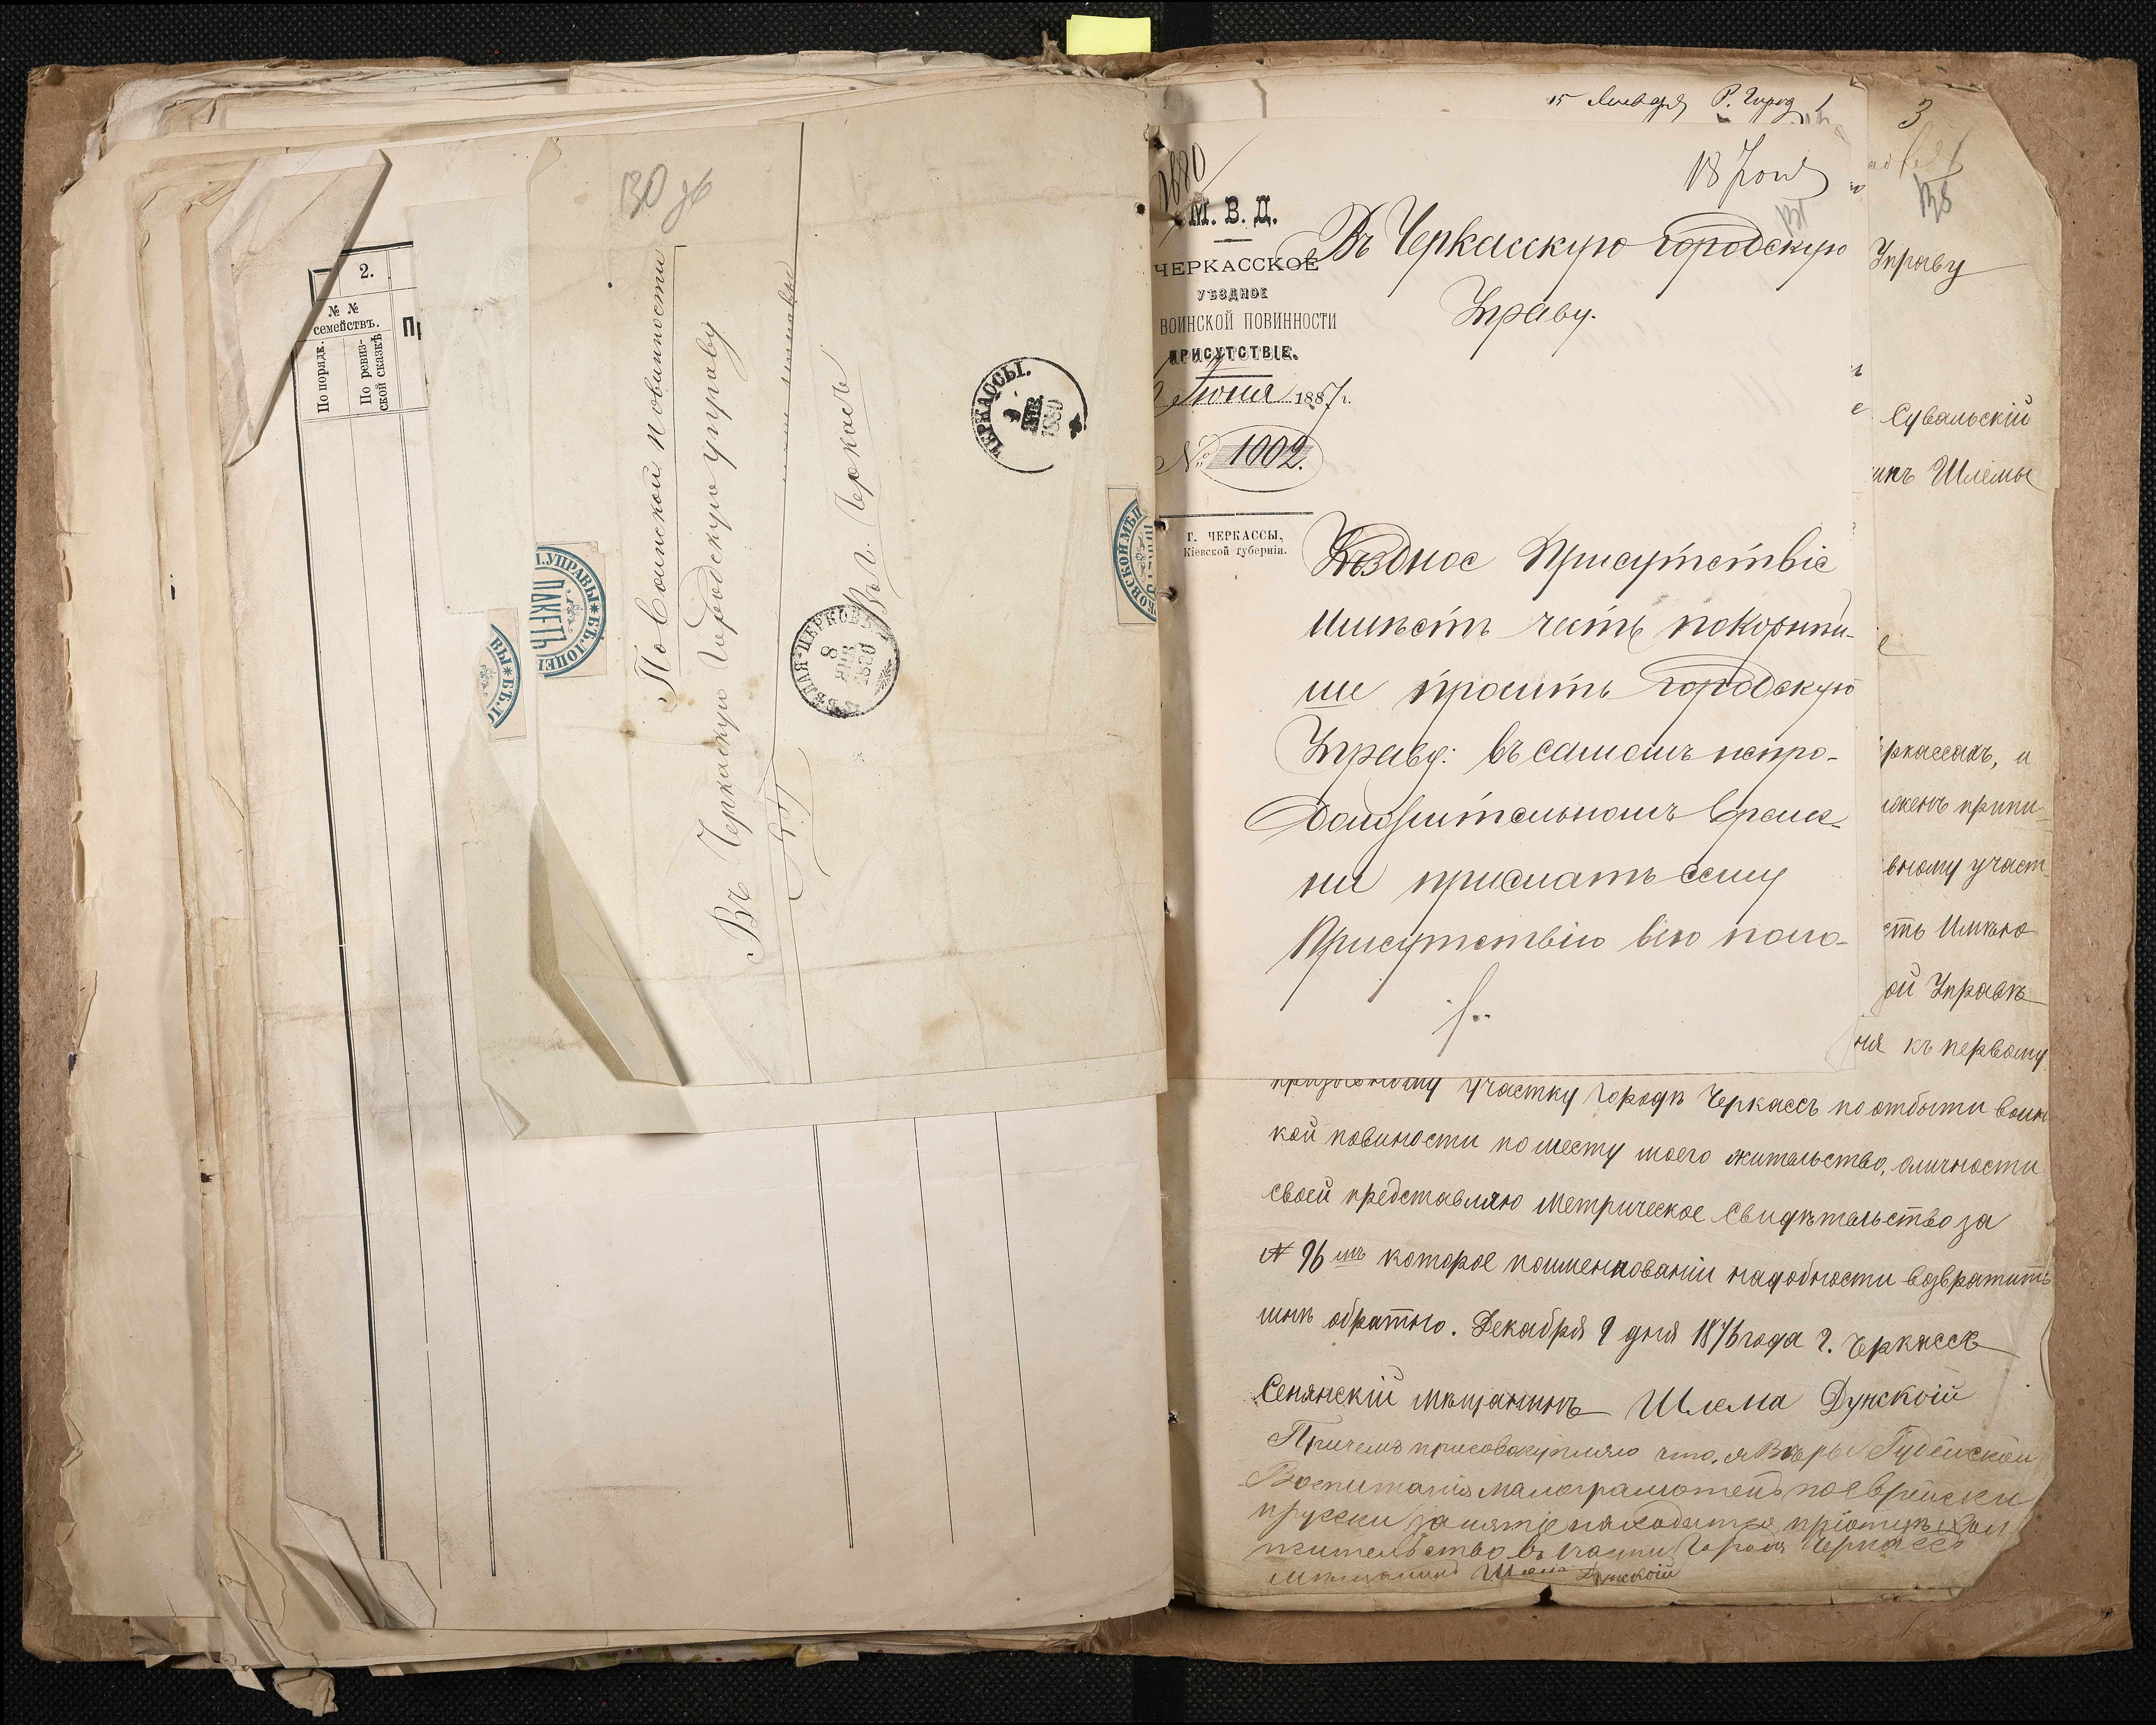 2.
№ №
семействъ.
По порядк.
По ревиз-
ской сказкѣ
130
По воинской повинности
Въ Черкаскую Городскую управу
Въ г. Черкасъ
ЧЕРКАССЫ.
9
ЯНВ
1880
БѢЛАЯ-ЦЕРКОВЬ
8
ЯНВ
1880
ПАКЕТЪ
15 Января Р. Город
1880
18 Іюня
131
М. В. Д.
ЧЕРКАССКОЕ
УѢЗДНОЕ
ВОИНСКОЙ ПОВИННОСТИ
ПРИСУТСТВІЕ.
Іюня 1887 г.
№ 1002.
Г. ЧЕРКАССЫ,
Кіевской губерніи.
Въ Черкасскую городскую
Управу.
Уѣздное Присутствіе
имѣетъ честь покорнѣй-
ше проситъ городскую
Управу: въ самомъ непро-
должительномъ време-
ни прислать сему
Присутствію
3
138
Управу
Сувальскій
Шлемы
ркассахъ, и
припи
вному участ
сть Имѣю
ой Управѣ
къ первому
призывному участку городѣ Черкассъ по отбыти воин
кой повиности по месту моего жительство, оличности
своей представляю метрическое свидѣтельство за
№ 96 которое поименовании надобности возвратить
мнѣ обратно. Декабря 9 дня 1876 года г. Черкассъ
Сенянскій мѣщанинъ Шлема Дунской
Причемъ присовокупляю что, я Вѣры Іудейской
Воспитанія малограмотенъ поеврейски
прусски занятіе
жительство въ части Города Черкассъ
мѣщанинъ Шлема Дунскоій